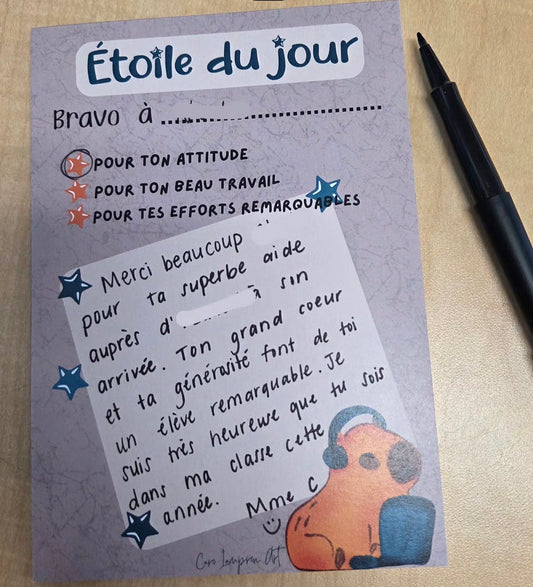 Étoile du jour
Bravo à ....................................
POUR TON ATTITUDE
POUR TON BEAU TRAVAIL
POUR TES EFFORTS REMARQUABLES
Merci beaucoup
pour ta superbe aide
auprès d' à son
arrivée. Ton grand coeur
et ta générosité font de toi
un élève remarquable. Je
suis très heureuse que tu sois
dans ma classe cette
année.
Mme C
Caro Lampron Art